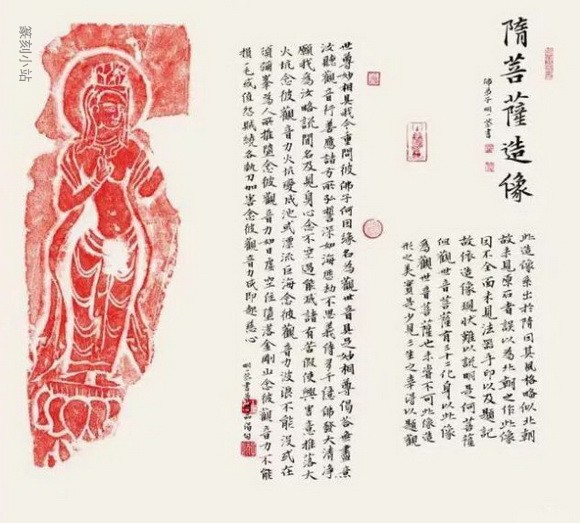 隋菩薩造像
此造像系出於隋因其風格略似北朝
故未見原石者誤以為北朝之作此像
因不全面未見法器手印以及題記
故依造像現狀難以說明是何菩薩
但觀世音菩薩有三十二化身以此像
為觀世音菩薩也未嘗不可此像造
形之美實是少見三生之幸得以題觀
世尊妙相具我今重問彼佛子何因緣名為觀世音具足妙相尊偈答無盡意
汝聽觀音行善應諸方所弘誓深如海歷劫不思議侍多千億佛發大清淨
願我為汝略說聞名及見身心念不空過能滅諸有苦假使興害意推落大
火坑念彼觀音力火坑變成池或漂流巨海念彼觀音力波浪不能沒或在
須彌峯為人所推墮念彼觀音力如日虛空住墮落金剛山念彼觀音力不能
損一毛或值怨賊繞各執刀加害念彼觀音力咸即起慈心
篆刻小站